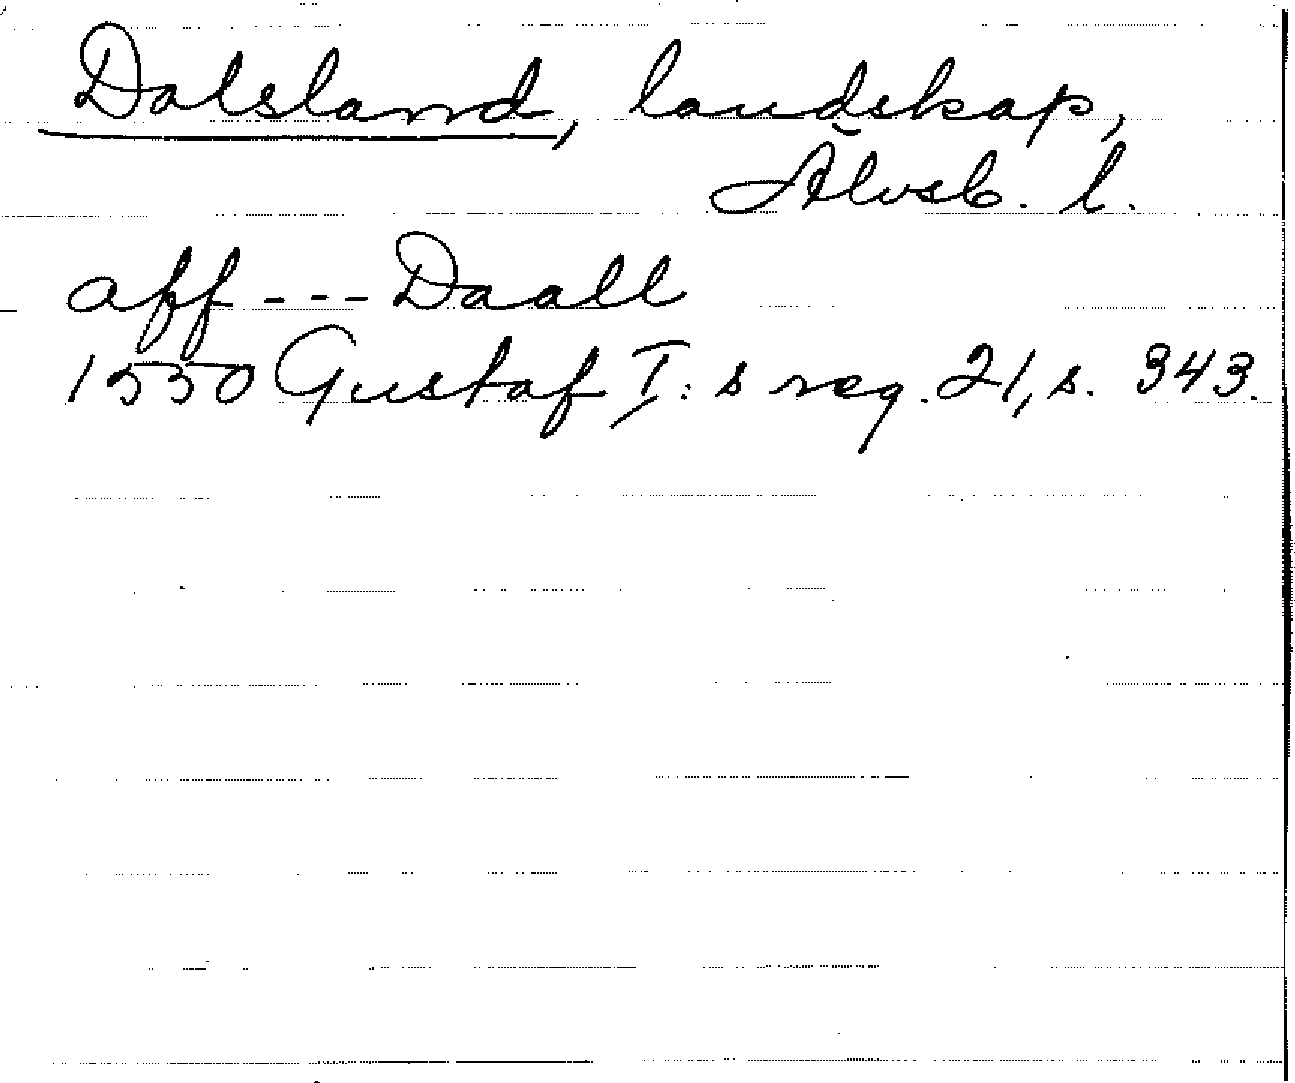 Dalsland, landskap,
Älvsb. l.
aff --- Daall
1550 Gustaf I:s reg. 21, s. 343.